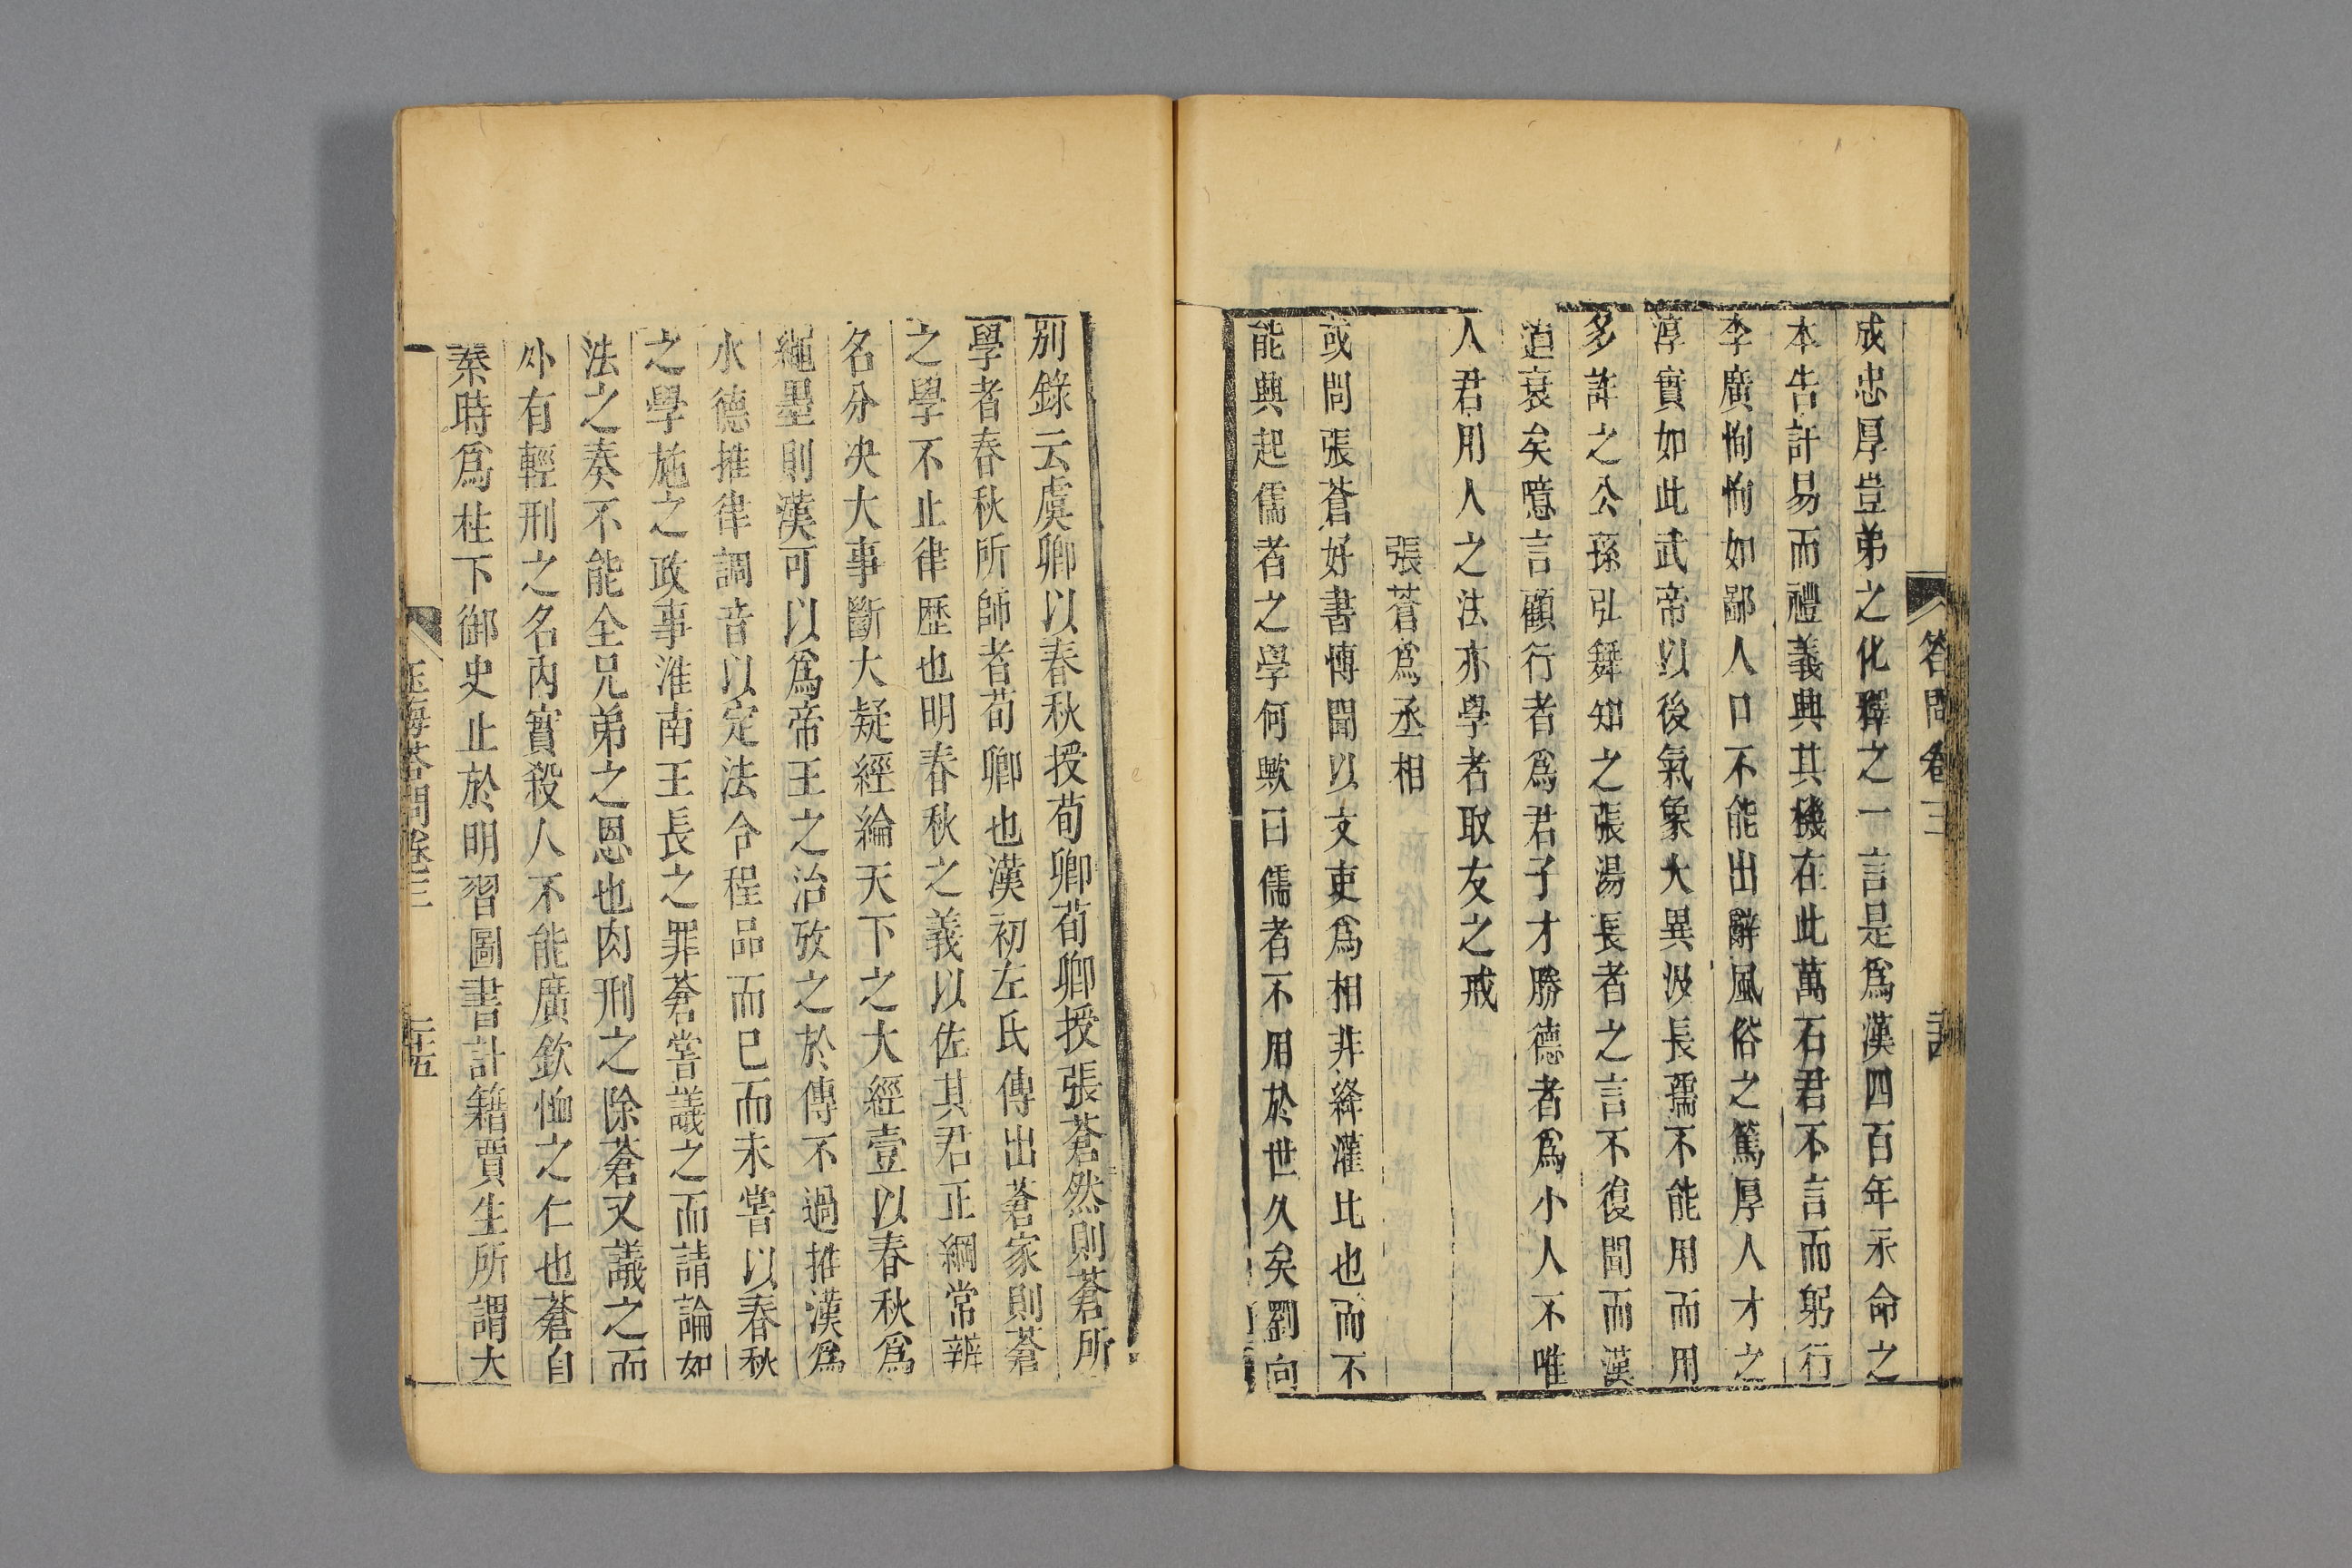 答問卷三
成忠厚豈弟之化釋之一言是爲漢四百年永命之
本告訐易而禮義興其機在此萬石君不言而躬行
李廣恂恂如鄙人口不能出辭風俗之篤厚人才之
淳實如此武帝以後氣象大異汲長孺不能用而用
多詐之公孫弘舞知之張湯長者之言不復聞而漢
道衰矣噫言顧行者爲君子才勝德者爲小人不唯
人君用人之法亦學者取友之戒
張蒼爲丞相
或問張蒼好書博聞以文吏爲相非絳灌比也而不
能興起儒者之學何歟曰儒者不用於世久矣劉向
別錄云虞卿以春秋授荀卿荀卿授張蒼然則蒼所
學者春秋所師者荀卿也漢初左氏傳出蒼家則蒼
之學不止律歷也明春秋之義以佐其君正綱常辨
名分决大事斷大疑經綸天下之大經壹以春秋爲
繩墨則漢可以爲帝王之治攷之於傳不過推漢爲
水德推律調音以定法令程品而已而未嘗以春秋
之學施之政事淮南王長之罪蒼嘗議之而請論如
法之奏不能全兄弟之恩也肉刑之除蒼又議之而
外有輕刑之名內實殺人不能廣欽恤之仁也蒼自
秦時爲柱下御史止於明習圖書計籍賈生所謂大
玉海答問卷三
二十五